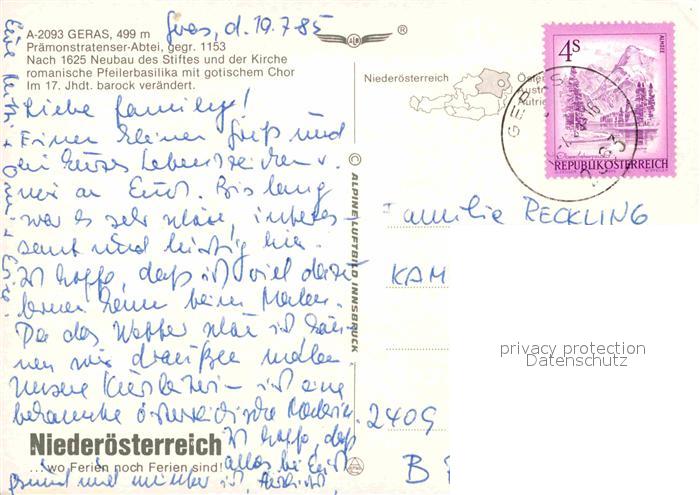 A-2093 GERAS, 499 m
Prämonstratenser-Abtei, gegr. 1153
Nach 1625 Neubau des Stiftes und der Kirche
romanische Pfeilerbasilika mit gotischem Chor
Im 17. Jhdt. barock verändert.
Geras, d. 19.7.85
Liebe Familie!
Einen kleinen Gruß und
ein kurzes Lebenszeichen v.
mir an Euch. Bislang
war es sehr schön, interes-
sant und lustig hier.
Ich hoffe, daß ich viel dazu
lernen kann beim Malen.
Da das Wetter schön ist kön-
nen wir draußen malen
Unsere Künstlerin ist eine
bekannte österreichische Malerin.
Ich hoffe, daß
alles bei Euch
und munter ist,
Niederösterreich
...wo Ferien noch Ferien sind!
© ALPINE LUFTBILD INNSBRUCK
®
Niederösterreich
4S
ALMSEE
REPUBLIK ÖSTERREICH
GERAS
2093
Familie RECKLING
KAM
2409
B
privacy protection
Datenschutz